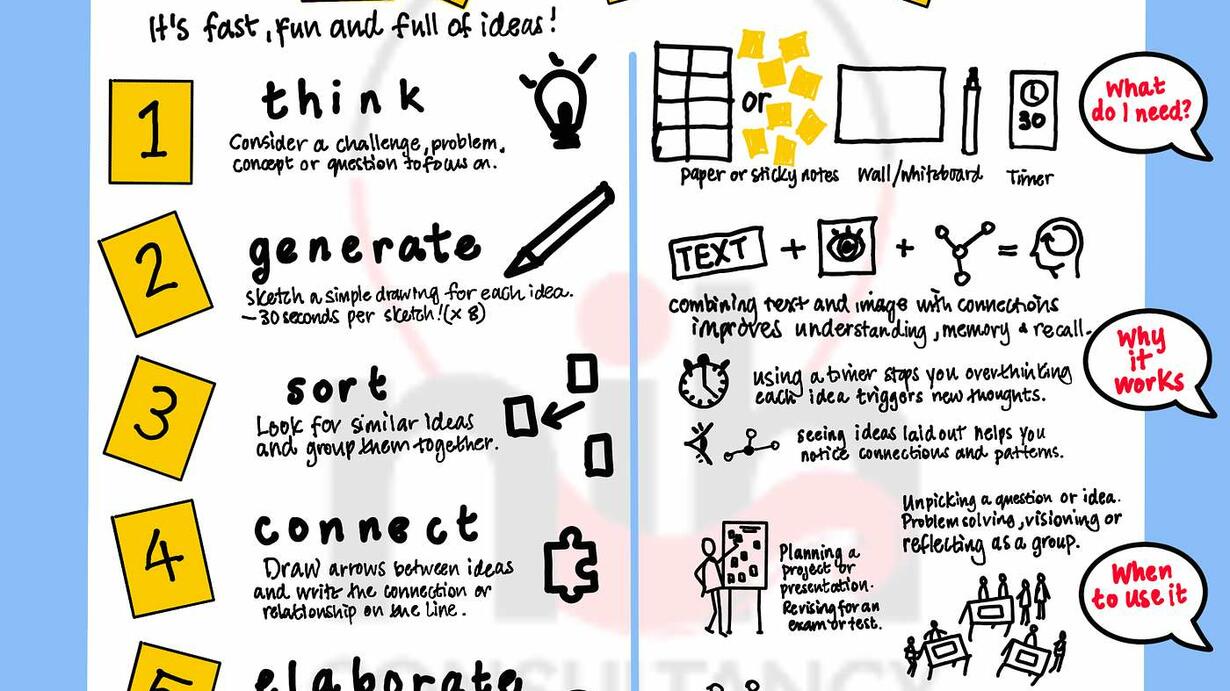 It's fast, fun and full of ideas!
1
think
Consider a challenge, problem,
concept or question to focus on.
2
generate
Sketch a simple drawing for each idea.
~30 seconds per sketch! (x 8)
3
sort
Look for similar ideas
and group them together.
4
connect
Draw arrows between ideas
and write the connection or
relationship on the line.
5
elaborate
or
30
Paper or sticky notes
Wall/whiteboard
Timer
What
do I need?
TEXT + + =
combining text and image with connections
improves understanding, memory & recall.
using a timer stops you overthinking
each idea triggers new thoughts.
seeing ideas laid out helps you
notice connections and patterns.
Why
it
works
Unpicking a question or idea.
Problem solving, visioning or
reflecting as a group.
Planning a
project or
presentation.
Revising for an
exam or test.
When
to use it
CONSULTANCY